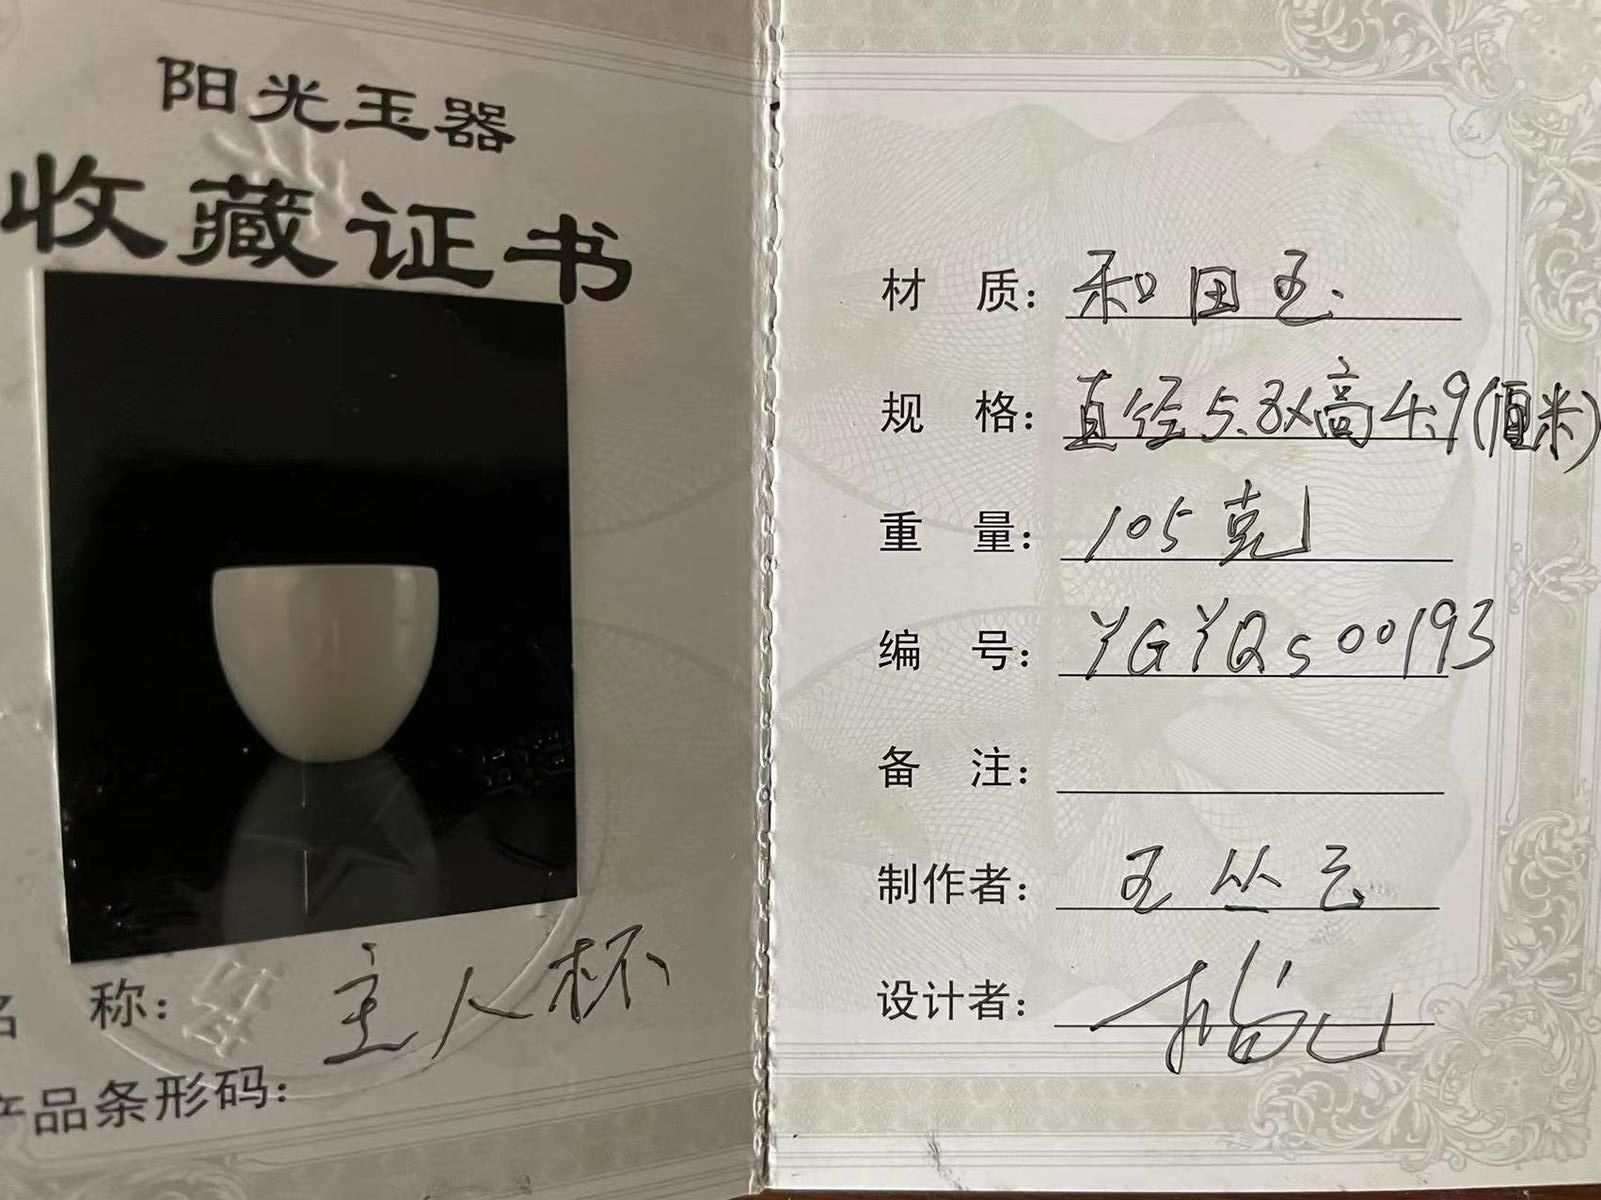 阳光玉器
收藏证书
名 称：主人杯
产品条形码：
材 质：和田玉
规 格：直径5.8×高4.9(厘米)
重 量：105克
编 号：YGYQS00193
备 注：
制作者：王丛云
设计者：